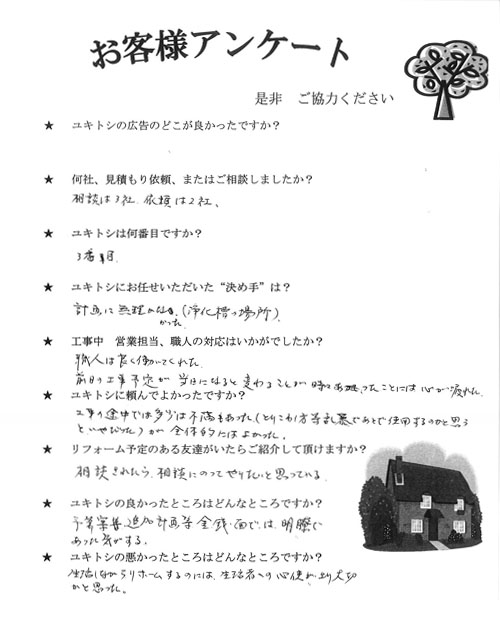 お客様アンケート
是非　ご協力ください
★ ユキトシの広告のどこが良かったですか？
★ 何社、見積もり依頼、またはご相談しましたか？
相談は3社、依頼は2社、
★ ユキトシは何番目ですか？
3番目.
★ ユキトシにお任せいただいた“決め手”は？
計画に無理がな
かった.（浄化槽の場所）.
★ 工事中　営業担当、職人の対応はいかがでしたか？
職人は良く働いてくれた.
前日の工事予定が当日になると変わることが時々あったことには心が疲れた.
★ ユキトシに頼んでよかったですか？
工事の途中では多少は不満もあった（とりこわし方等乱暴であとで使用するのかと思う
といやだった）が全体的にはよかった。
★ リフォーム予定のある友達がいたらご紹介して頂けますか？
相談されたら、相談にのってやりたいと思っている.
★ ユキトシの良かったところはどんなところですか？
予算 追加計画等金銭面では、明瞭で
あった気がする.
★ ユキトシの悪かったところはどんなところですか？
生活しながらリホームするのには、生活者への心使いがより大切
かと思った。